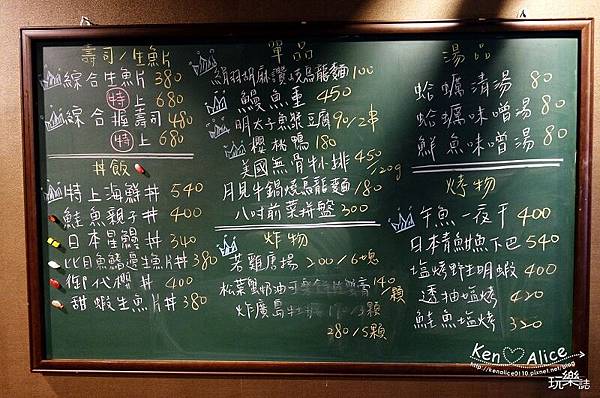 壽司/生魚片
綜合生魚片 380
特上 680
綜合握壽司 480
特上 680
丼飯
特上海鮮丼 540
鮭魚親子丼 400
日本星鰻丼 340
比目魚鰭邊生魚片丼 380
御代櫻丼 400
甜蝦生魚片丼 380
單品
胡麻 烏龍麵 100
鰻魚重 450
明太子魚漿豆腐 90/2串
櫻桃鴨 180
美國無骨牛小排 450/120g
月見牛鍋燒烏龍麵 180
八吋前菜拼盤 300
炸物
若雞唐揚 200/6塊
松葉蟹奶油可樂餅 140/顆
炸廣島牡蠣 3顆
280/5顆
湯品
蛤蠣清湯 80
蛤蠣味噌湯 80
鮮魚味噌湯 80
烤物
午魚一夜干 400
日本青魽魚下巴 540
塩烤野生明蝦 400
透抽塩烤 420
鮭魚塩烤 320
Ken♡Alice
http://kenalice0110.pixnet.net/blog
玩樂誌